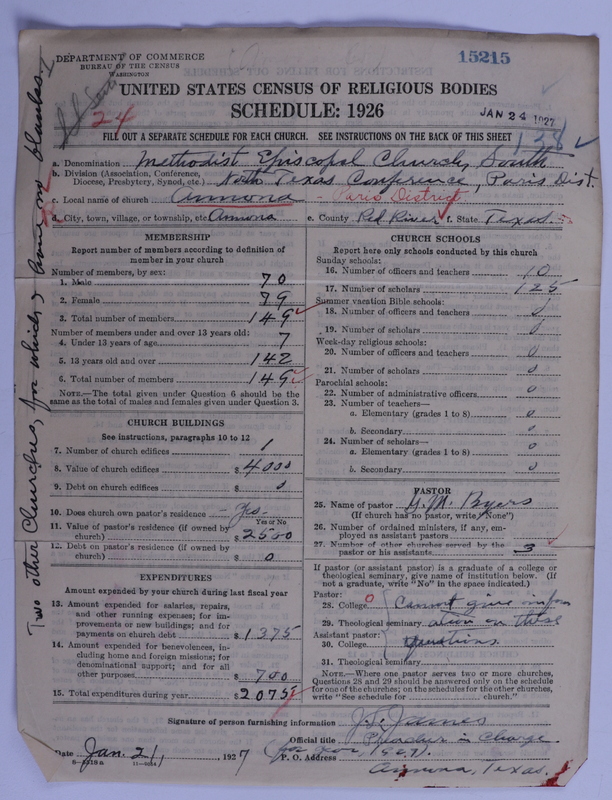 DEPARTMENT OF COMMERCE
BUREAU OF THE CENSUS
WASHINGTON
15215
24
UNITED STATES CENSUS OF RELIGIOUS BODIES
SCHEDULE: 1926
JAN 24 1927
FILL OUT A SEPARATE SCHEDULE FOR EACH CHURCH. SEE INSTRUCTIONS ON THE BACK OF THIS SHEET
138
a. Denomination Methodist Episcopal Church, South
b. Division (Association, Conference, Diocese, Presbytery, Synod, etc.) North Texas Conference, Paris Dist.
c. Local name of church Annona - Paris District
d. City, town, village, or township, etc. Annona e. County Red River f. State Texas
MEMBERSHIP
Report number of members according to definition of
member in your church
Number of members, by sex:
1. Male 70
2. Female 79
3. Total number of members 149
Number of members under and over 13 years old:
4. Under 13 years of age 7
5. 13 years old and over 142
6. Total number of members 149
NOTE.—The total given under Question 6 should be
same as the total of males and females given under Question 3.
CHURCH BUILDINGS
See instructions, paragraphs 10 to 12
7. Number of church edifices 1
8. Value of church edifices $ 4000
9. Debt on church edifices $ 0
10. Does church own pastor's residence - yes -
Yes or No
11. Value of pastor's residence (if owned by
church) $ 2500
12. Debt on pastor's residence (if owned by
church) $ 0
EXPENDITURES
Amount expended by your church during last fiscal year
13. Amount expended for salaries, repairs,
and other running expenses; for im-
provements or new buildings; and for
payments on church debt $ 1375
14. Amount expended for benevolences, in-
cluding home and foreign missions; for
denominational support; and for all
other purposes $ 700
15. Total expenditures during year $ 2075
CHURCH SCHOOLS
Report here only schools conducted by this church
Sunday schools:
16. Number of officers and teachers 10
17. Number of scholars 125
Summer vacation Bible schools:
18. Number of officers and teachers 0
19. Number of scholars 0
Week-day religious schools:
20. Number of officers and teachers 0
21. Number of scholars 0
Parochial schools:
22. Number of administrative officers 0
23. Number of teachers—
a. Elementary (grades 1 to 8) 0
b. Secondary 0
24. Number of scholars—
a. Elementary (grades 1 to 8) 0
b. Secondary 0
PASTOR
25. Name of pastor Byers
(If church has no pastor, write "None")
26. Number of ordained ministers, if any, em-
ployed as assistant pastors
27. Number of other churches served by the
pastor or his assistants 3
If pastor (or assistant pastor) is a graduate of a college or
theological seminary, give name of institution below. (If
not a graduate, write "No" in the space indicated.)
Pastor:
28. College 0 Cannot give infor
29. Theological seminary ation on these
Assistant pastor:
30. College questions
31. Theological seminary
NOTE.—Where one pastor serves two or more churches,
Questions 28 and 29 should be answered only on the schedule
for one of the churches; on the schedules for the other churches,
write "See schedule for church."
Signature of person furnishing information J. J. James
Official title Preacher in Charge
for year, 1927.
Date Jan. 21, 1927 P. O. Address
Annona, Texas.
Two other Churches, for which I have no blanks.